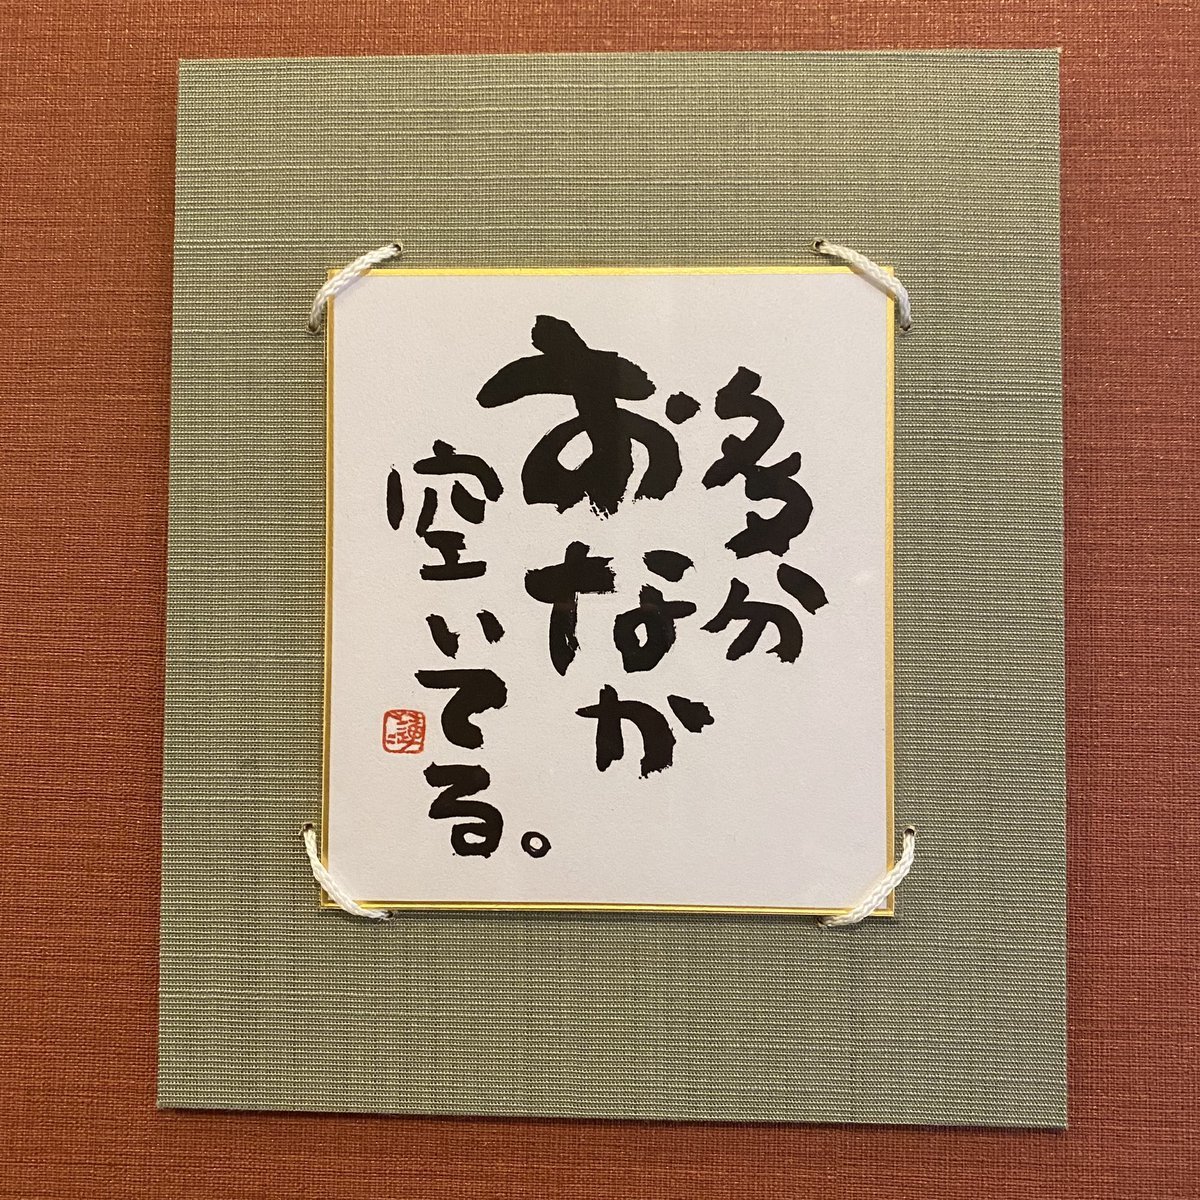 多分
おなか
空いてる。